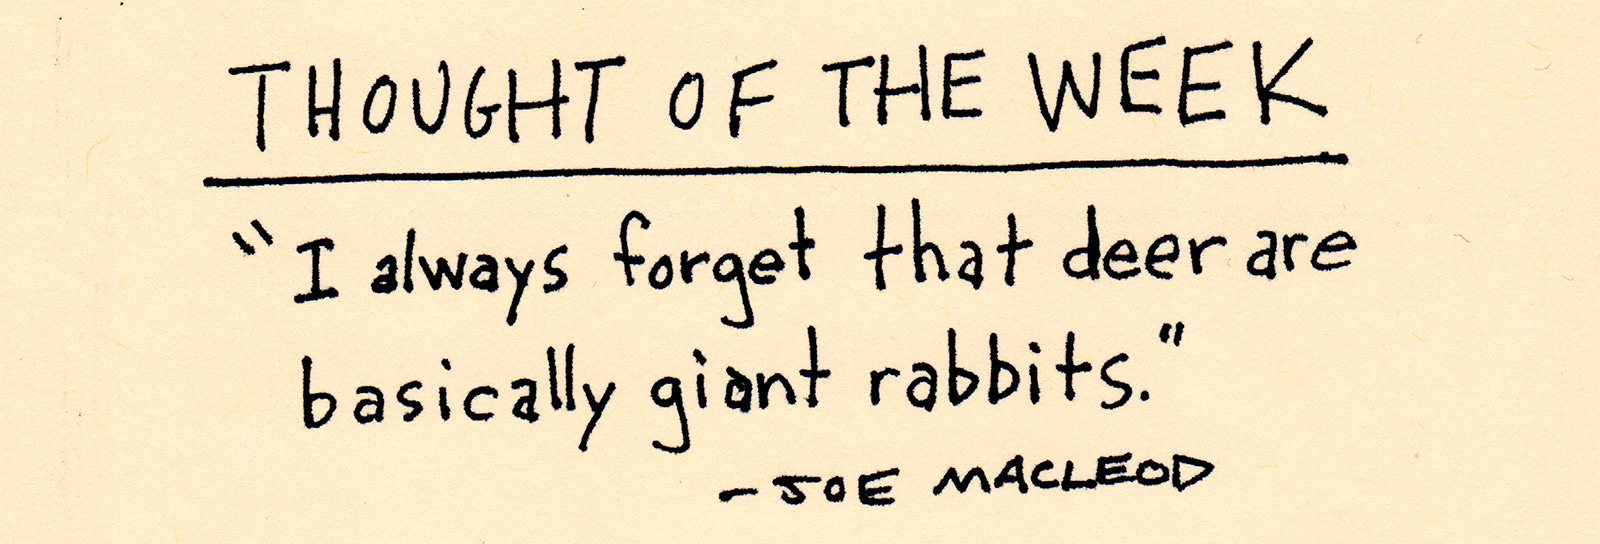 THOUGHT OF THE WEEK
"I always forget that deer are
basically giant rabbits."
- JOE MACLEOD